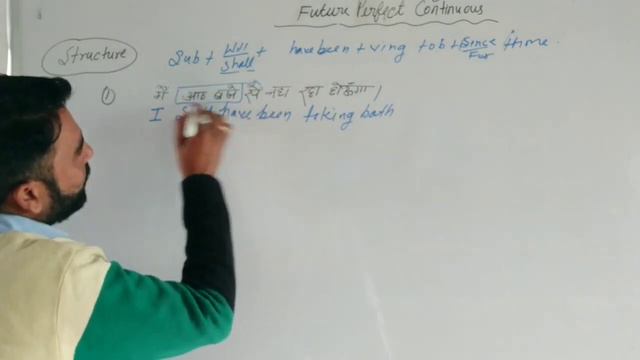 Future Perfect Continuous
Structure Sub + Will/Shall + have been + ving + ob + Since/For + time.
① मैं आठ बजे से नहा रहा होऊँगा।
I have been taking bath